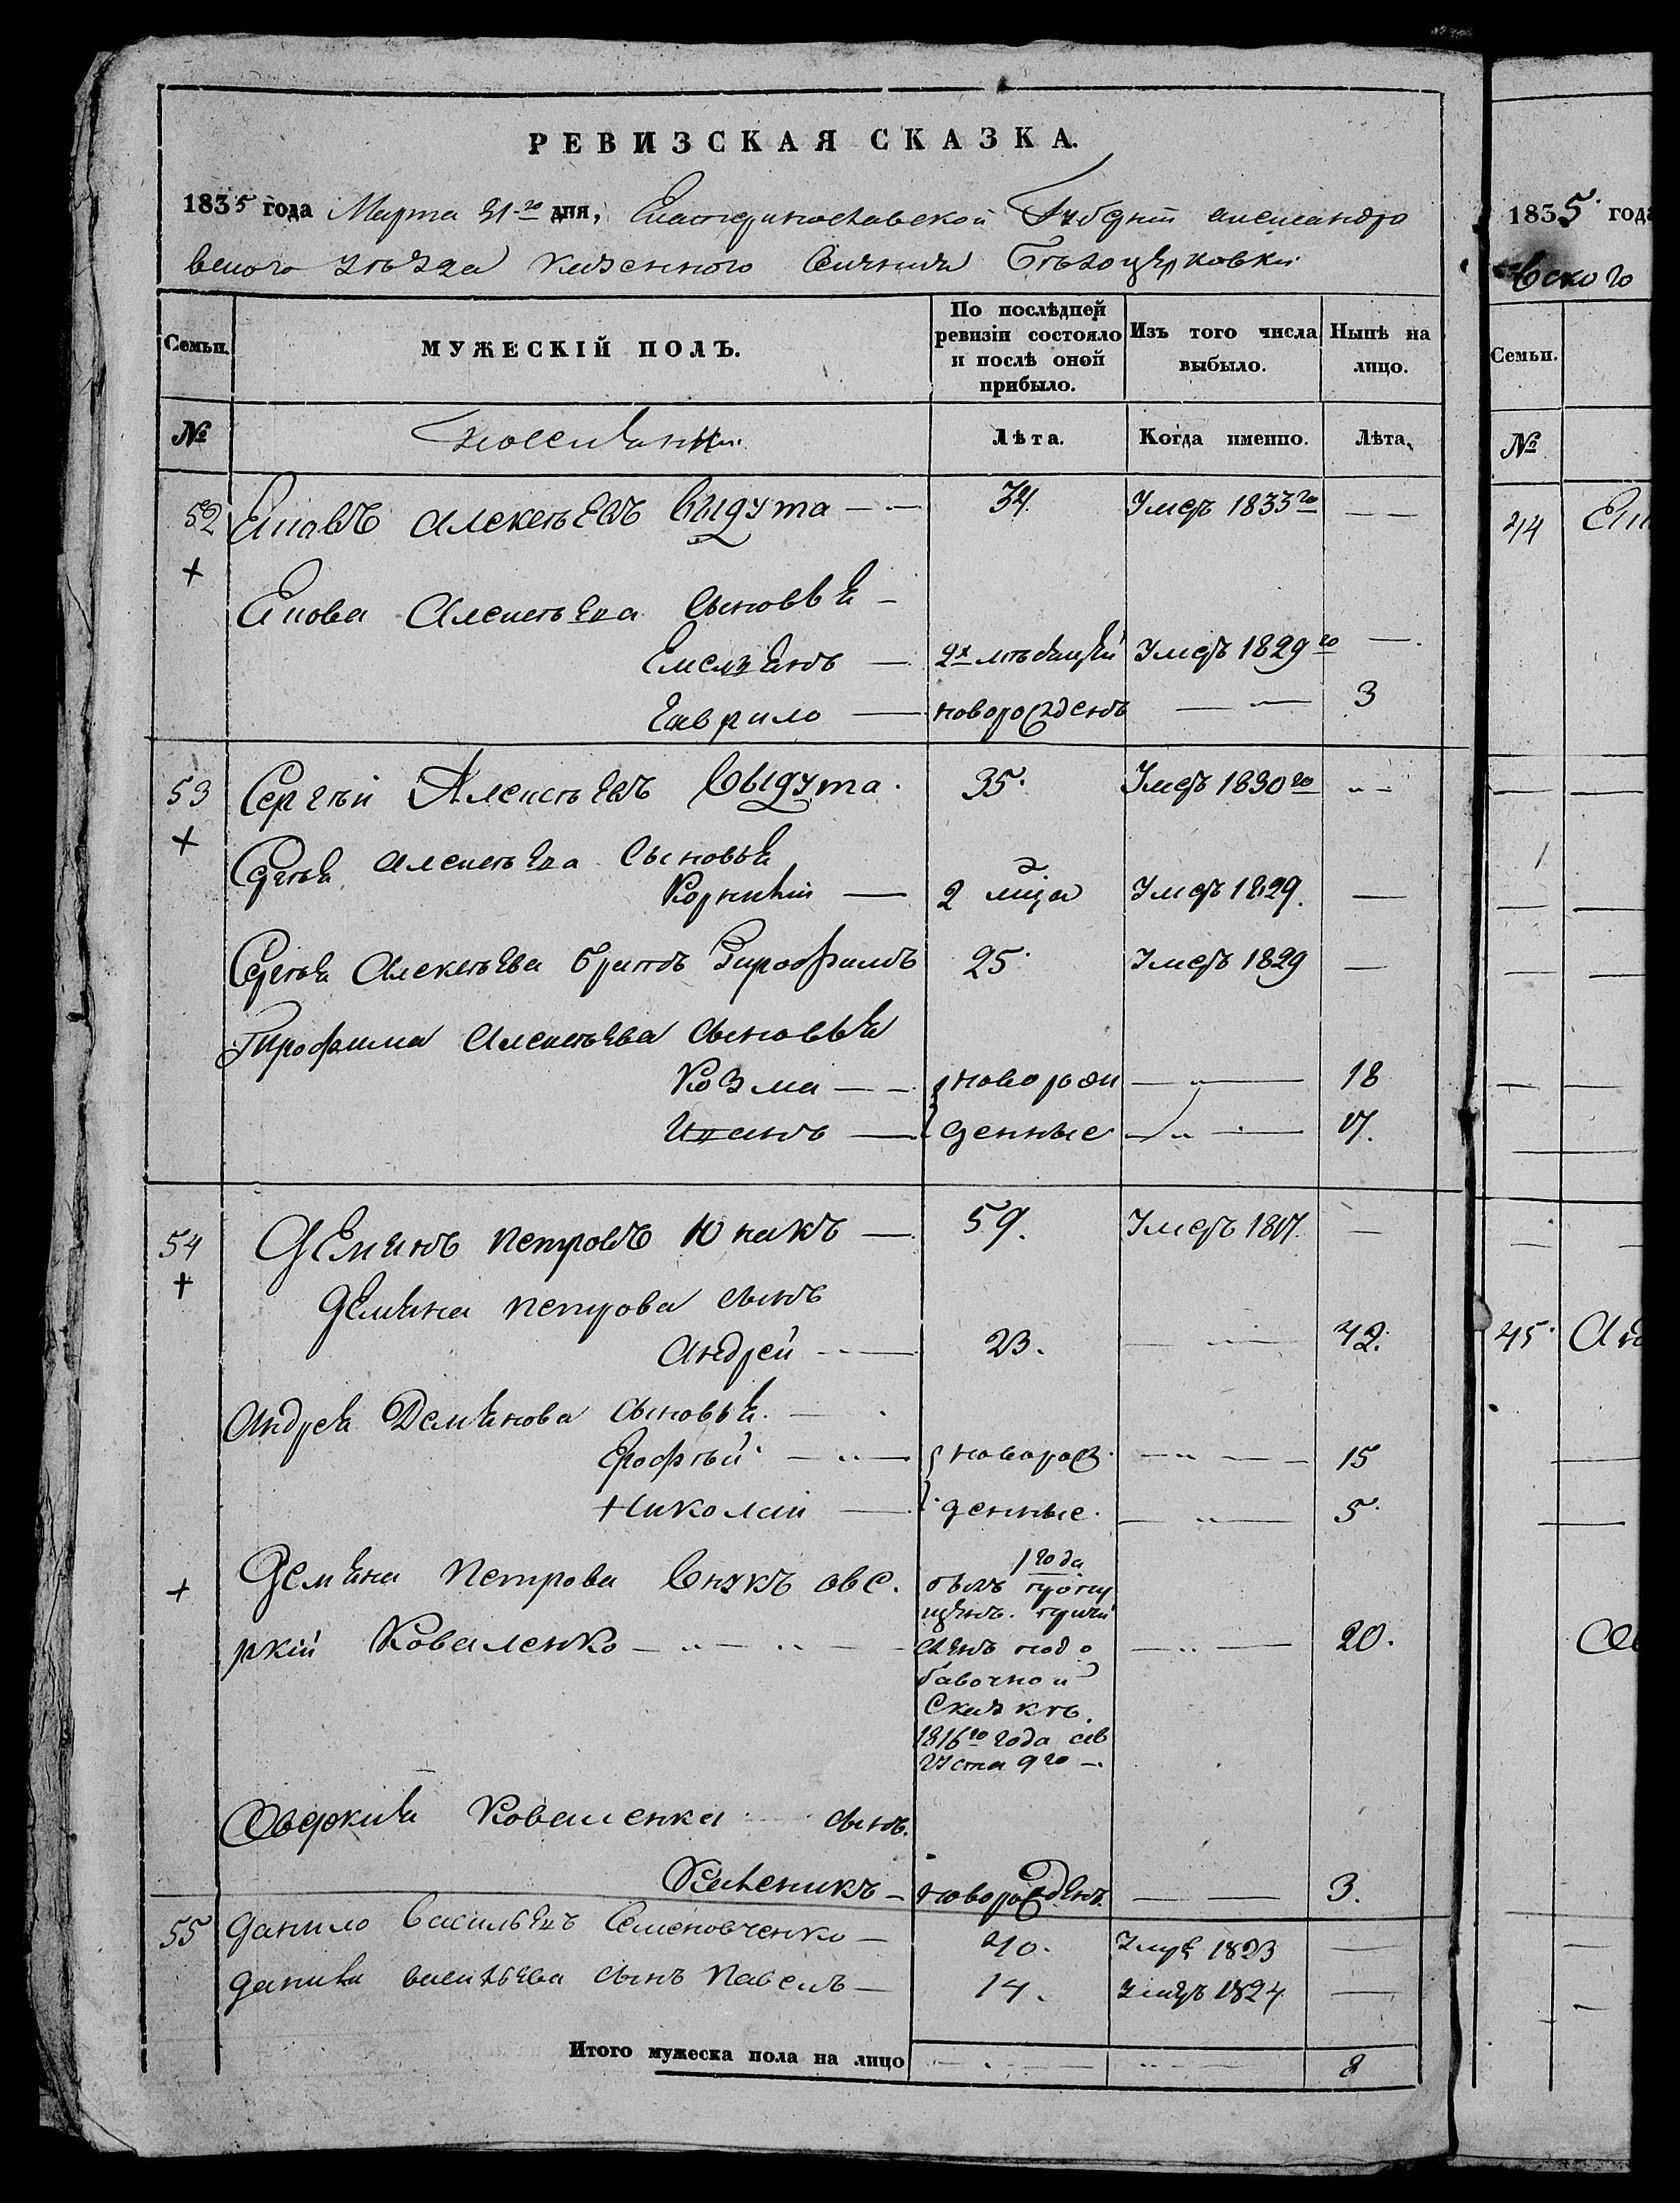 РЕВИЗСКАЯ СКАЗКА.
1835 года Марта 31-го дня, Екатеринославской Губерніи александро
вского уѣзда казенного Селенія Бѣлоцерковки
Семьи. МУЖЕСКІЙ ПОЛЪ. По послѣдней ревизіи состояло и послѣ оной прибыло. Изъ того числа выбыло. Нынѣ на лицо.
№ поселяни. Лѣта. Когда именно. Лѣта.
52 Яковъ Алексѣевъ Выдута 34. Умеръ 1833го
Якова Алексѣева сыновья
Емелянъ 2х мѣсяцей Умеръ 1829го
Гаврило новорожденъ 3
53 Сергѣй Алексѣевъ Выдута. 35. Умеръ 1830го
Сергѣя Алексѣева Сыновья
Корнѣй 2 мца Умеръ 1829.
Сергѣя Алексѣева братъ Трофимъ 25. Умеръ 1829
Трофима Алексѣева сыновья
Козма новорож 18
Иванъ денные 17.
54 Демянъ петровъ Юнакъ 59. Умеръ 1817.
Демяна петрова сынъ
Андрей 23. 42.
Андрея Демянова сыновья.
Ерофѣй новорож. 15
+ Николай денные. 5.
Демяна Петрова Внукъ аве.
ркій Коваленко 1 года былъ пропу
щенъ. причи
сленъ под о
бавочной
Сказкѣ.
1816го года ав
густа 9го 20.
Аверкия Коваленка сынъ.
Каленикъ новорожденъ. 3.
55 Данило Васильевъ Семеновченко 40. Умре 1823
Данила васильева сынъ Павелъ 14. Умеръ 1824
Итого мужеска пола на лицо 8
1835. года
вского
Семьи.
№
44
1
45.